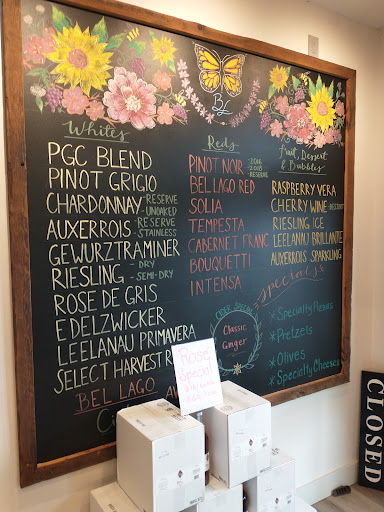 BL
Whites
PGC BLEND
PINOT GRIGIO
CHARDONNAY - RESERVE
- UNOAKED
AUXERROIS - RESERVE
- STAINLESS
GEWURZTRAMINER
RIESLING - DRY
- SEMI-DRY
ROSE DE GRIS
EDELZWICKER
LEELANAU PRIMAVERA
SELECT HARVEST R
BEL LAGO
Reds
PINOT NOIR - 2016
- 2018
- RESERVE
BEL LAGO RED
SOLIA
TEMPESTA
CABERNET FRANC
BOUQUETTI
INTENSA
CIDER SPECIAL
Classic
Ginger
Fruit, Dessert
& Bubbles
RASPBERRY VERA
CHERRY WINE
RIESLING ICE
LEELANAU BRILLANTE
AUXERROIS SPARKLING
Specials
* Specialty
* Pretzels
* Olives
* Specialty Cheeses
Rosé
Special
CLOSED